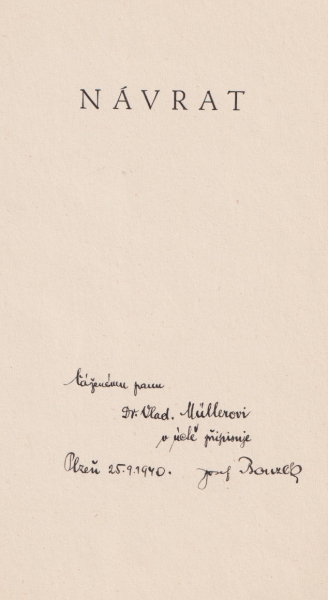 NÁVRAT
Váženému panu
Dr. Vlad. Müllerovi
v úctě připisuje
Plzeň 25.9.1940. Josef